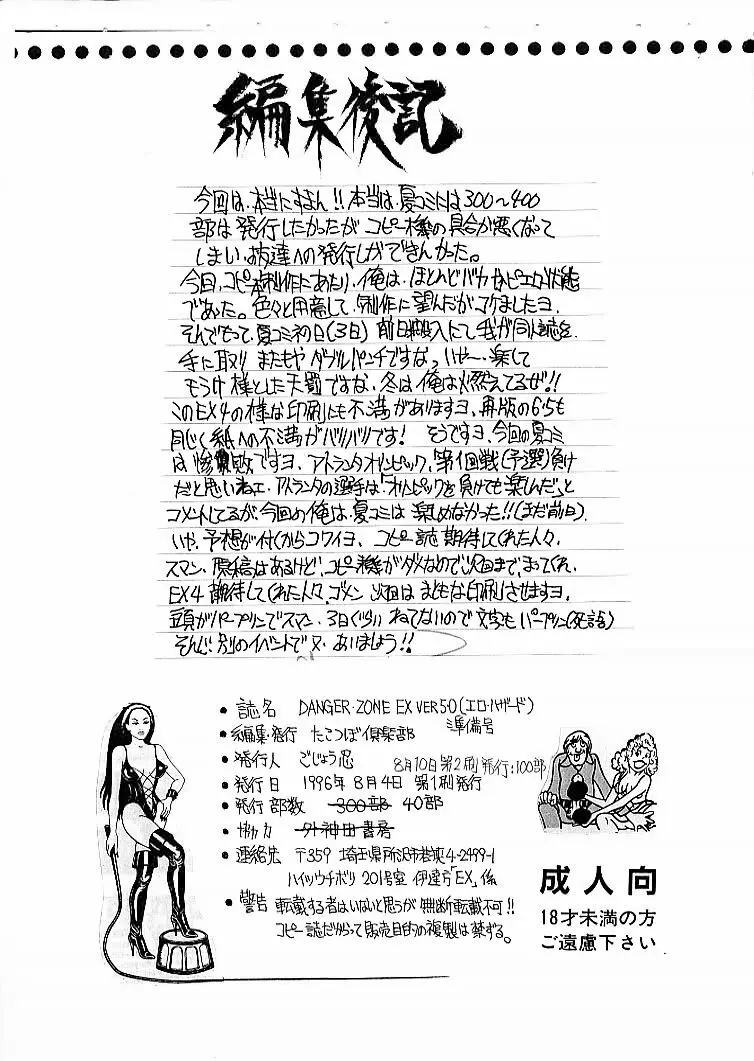 編集後記
今回は、本当にすまん!!本当は、夏コミには300〜400
部は発行したかったが コピー機の具合が悪くなって
しまい、お友達への発行しかできんかった。
今回、コピー本制作にあたり、俺は、ほとんどバカなピエロ状態
であった。色々と用意して、制作に望んだがコケましたヨ。
そんでもって、夏コミ初日(3日) 前日搬入にて 我が同人誌を
手に取り またもや ダブルパンチですな。いやー、楽して
もうけ様とした天罰ですな、冬は 俺は燃えてるぜ!!
このEX4の様な印刷にも不満がありますヨ、再版の6.5も
同じく 紙への不満がバリバリです! そうですヨ、今回の夏コミ
は 惨敗ですヨ、アトランタオリンピック、第1回戦(予選)負け
だと思いねェ、アトランタの選手は「オリンピックを負けても楽しんだ」と
コメントしてるが、今回の俺は、夏コミは 楽しめなかった!!(まだ前日)
いや、予想が付くからコワイヨ、コピー誌 期待してくれた人々、
スマン、原稿はあるけど、コピー機がダメなので次回まで、まってくれ、
EX4 期待してくれた人々、ゴメン 次回は まともな印刷させますヨ、
頭がパープリンでスマン、3日ぐらい ねてないので 文字も パープリン(死語)
そんじゃ 別のイベントで 又、あいましょう!!
・誌名 DANGER・ZONE EX VER5.0(エロ・ハザード)
準備号
・編集・発行 たこつぼ倶楽部
・発行人 ごじょう忍
8月10日 第2刷発行:100部
・発行日 1996年8月4日 第1刷発行
・発行部数 300部 40部
外神田書房
・連絡先 〒359 埼玉県所沢市 4-2499-1
ハイツウチボリ 201号室 伊達方「EX」係
・警告 転載する者はいないと思うが 無断転載不可!!
コピー誌だからって販売目的の複製は禁ずる。
成人向
18才未満の方
ご遠慮下さい